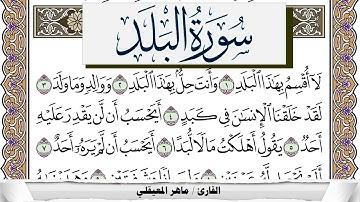 سُورَةُ البَلَدِ
لَآ أُقْسِمُ بِهَٰذَا ٱلْبَلَدِ ١ وَأَنتَ حِلٌّۢ بِهَٰذَا ٱلْبَلَدِ ٢ وَوَالِدٍ وَمَا وَلَدَ ٣
لَقَدْ خَلَقْنَا ٱلْإِنسَٰنَ فِى كَبَدٍ ٤ أَيَحْسَبُ أَن لَّن يَقْدِرَ عَلَيْهِ
أَحَدٌ ٥ يَقُولُ أَهْلَكْتُ مَالًا لُّبَدًا ٦ أَيَحْسَبُ أَن لَّمْ يَرَهُۥٓ أَحَدٌ ٧
القارئ / ماهر المعيقلي